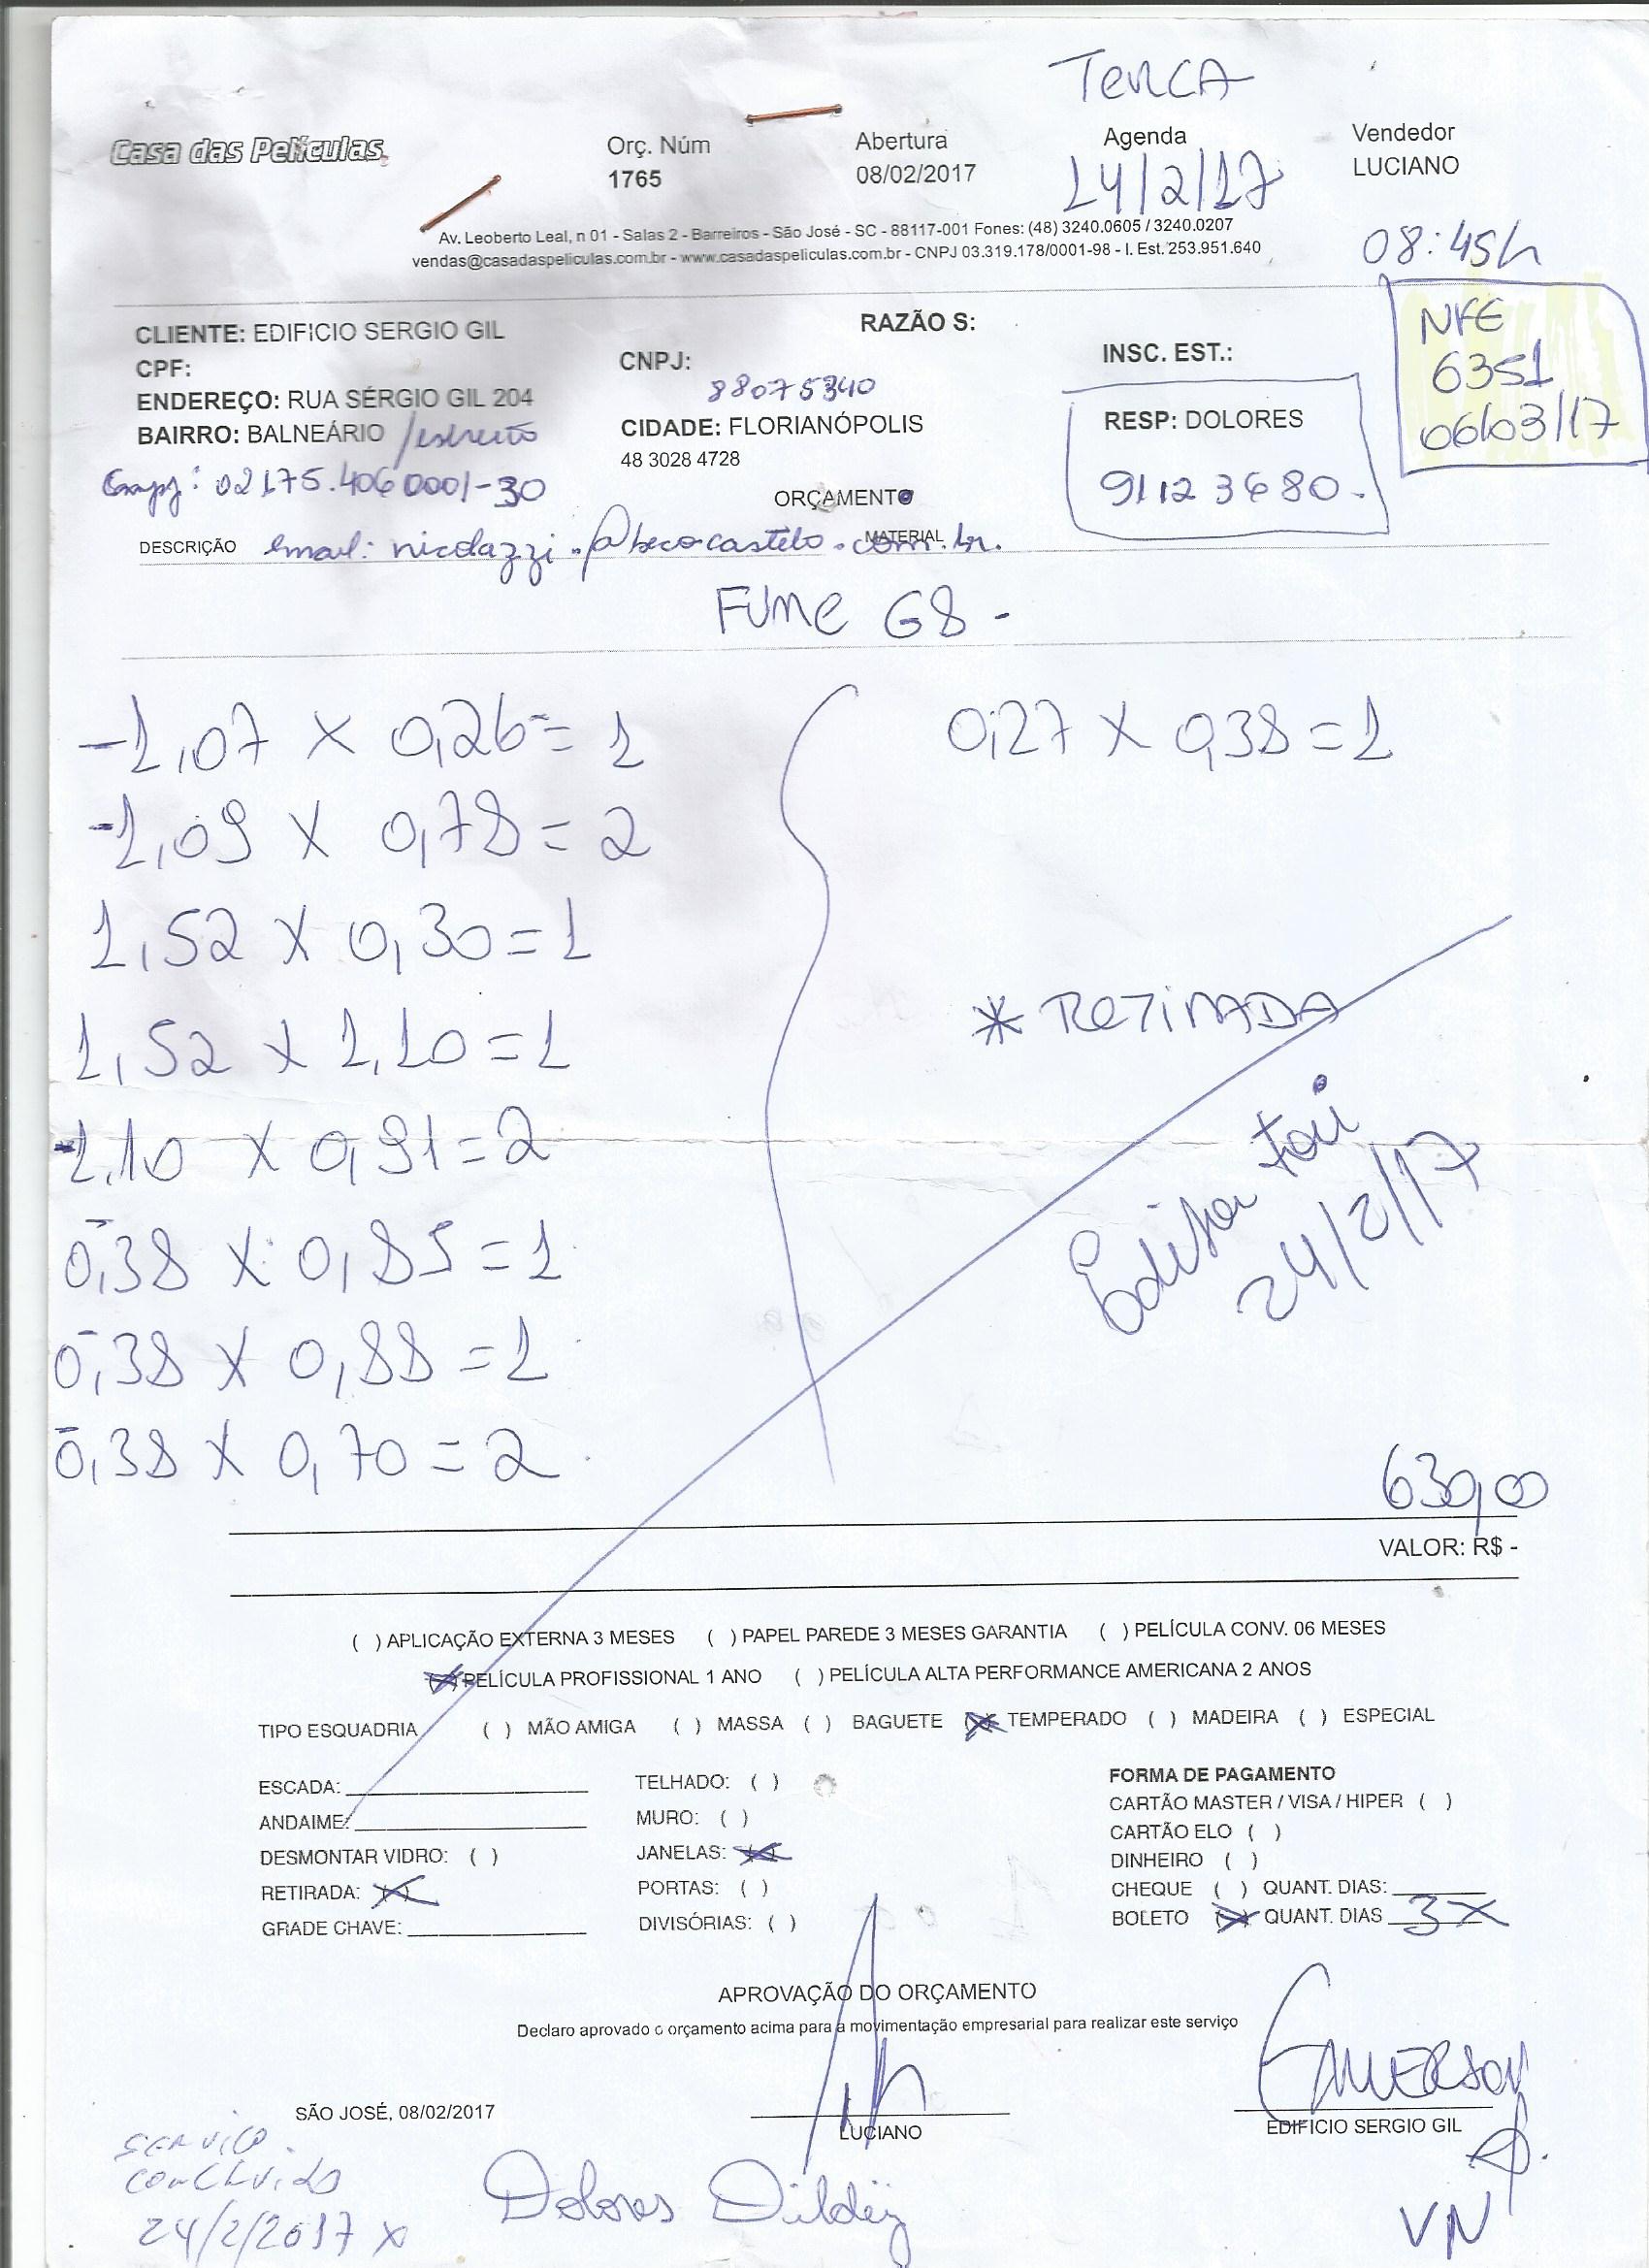 TERCA
Casa das Películas
Orç. Núm
1765
Abertura
08/02/2017
Agenda
14/2/17
Vendedor
LUCIANO
08:45h
Av. Leoberto Leal, n 01 - Salas 2 - Barreiros - São José - SC - 88117-001 Fones: (48) 3240.0605 / 3240.0207
vendas@casadaspeliculas.com.br - www.casadaspeliculas.com.br - CNPJ 03.319.178/0001-98 - I. Est. 253.951.640
NFE
6351
06/03/17
CLIENTE: EDIFICIO SERGIO GIL
RAZÃO S:
CPF:
CNPJ:
INSC. EST.:
88075340
ENDEREÇO: RUA SÉRGIO GIL 204
BAIRRO: BALNEÁRIO /estreito
CIDADE: FLORIANÓPOLIS
48 3028 4728
RESP: DOLORES
91123680.
Cnpj: 02175.406 0001-30
ORÇAMENTO
DESCRIÇÃO
MATERIAL
email: nicolazzi.@becocastelo.com.br.
FUME G8 -
-1,07 X 0,26 = 1
0,27 X 0,38 = 1
-1,09 X 0,78 = 2
1,52 X 0,30 = 1
1,52 X 1,10 = 1
-1,10 X 0,91 = 2
0,38 X 0,85 = 1
0,38 X 0,88 = 1
0,38 X 0,70 = 2
* RETIRADA
24/2/17
630,00
VALOR: R$ -
( ) APLICAÇÃO EXTERNA 3 MESES ( ) PAPEL PAREDE 3 MESES GARANTIA ( ) PELÍCULA CONV. 06 MESES
(X) PELÍCULA PROFISSIONAL 1 ANO ( ) PELÍCULA ALTA PERFORMANCE AMERICANA 2 ANOS
TIPO ESQUADRIA ( ) MÃO AMIGA ( ) MASSA ( ) BAGUETE (X) TEMPERADO ( ) MADEIRA ( ) ESPECIAL
ESCADA:
ANDAIME:
DESMONTAR VIDRO: ( )
RETIRADA: (X)
GRADE CHAVE:
TELHADO: ( )
MURO: ( )
JANELAS: (X)
PORTAS: ( )
DIVISÓRIAS: ( )
FORMA DE PAGAMENTO
CARTÃO MASTER / VISA / HIPER ( )
CARTÃO ELO ( )
DINHEIRO ( )
CHEQUE ( ) QUANT. DIAS:
BOLETO (X) QUANT. DIAS 3X
APROVAÇÃO DO ORÇAMENTO
Declaro aprovado o orçamento acima para a movimentação empresarial para realizar este serviço
EMERSON
SÃO JOSÉ, 08/02/2017
LUCIANO
EDIFICIO SERGIO GIL
SERVIÇO
CONCLUIDO
24/2/2017 X
Dolores
VN